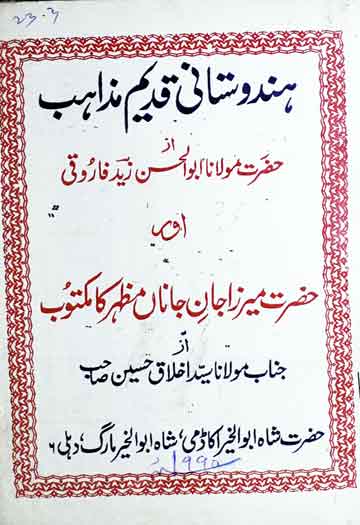 23.3
ہندوستانی قدیم مذاہب
از
حضرت مولانا ابوالحسن زید فاروقی
اور
حضرت میرزا جان جاناں مظہر کا مکتوب
از
جناب مولانا سید اخلاق حسین صاحب
حضرت شاہ ابوالخیر اکاڈمی، شاہ ابوالخیر مارگ، دہلی ۶